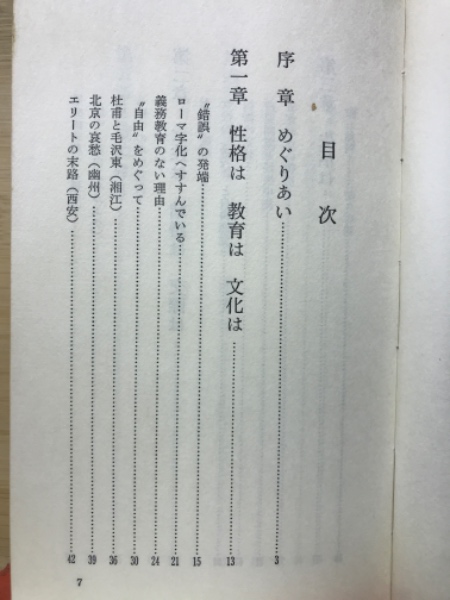 目次
序章 めぐりあい…………3
第一章 性格は 教育は 文化は…………13
〝錯誤〟の発端…………15
ローマ字化へすすんでいる…………21
義務教育のない理由…………24
〝自由〟をめぐって…………30
杜甫と毛沢東（湘江）…………36
北京の哀愁（幽州）…………39
エリートの末路（西安）…………42
7